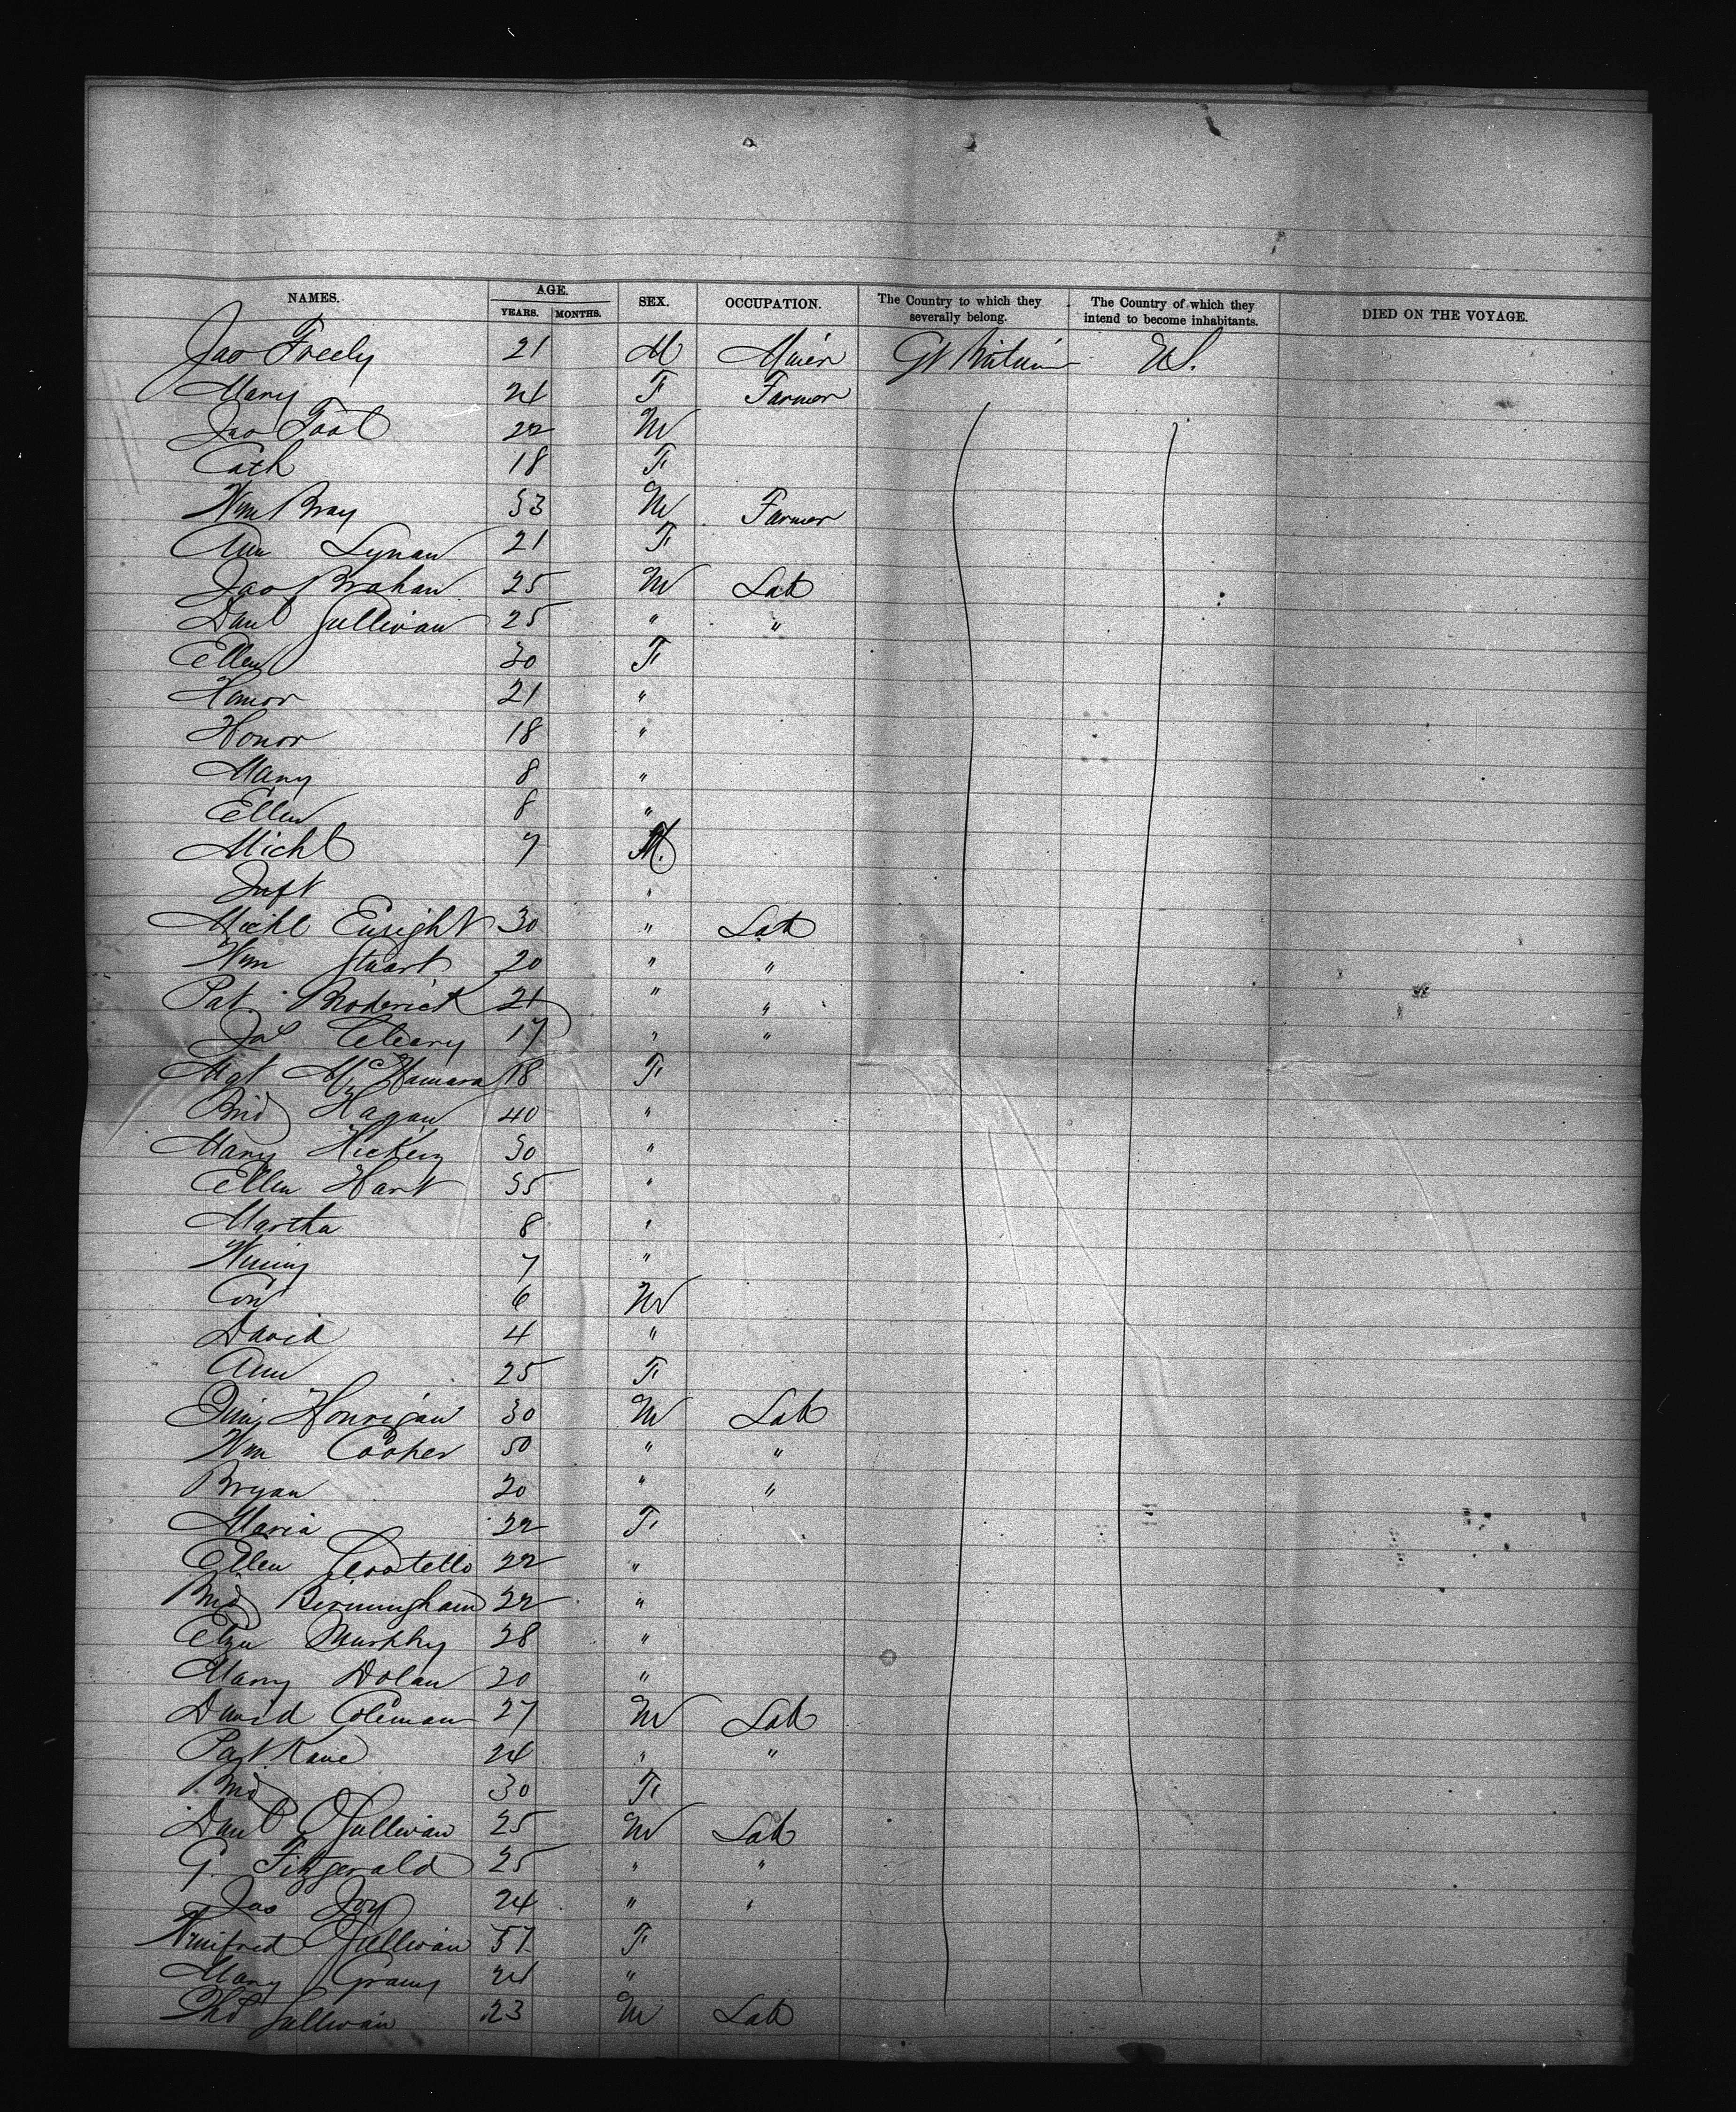 NAMES. AGE. SEX. OCCUPATION. The Country to which they severally belong. The Country of which they intend to become inhabitants. DIED ON THE VOYAGE.
YEARS. MONTHS.
Jas Freely 21 M Miner Gt Britain U.S.
Mary 24 F Farmer
Jas Tool 22 M
Cath 18 F
Wm Bray 53 M Farmer
Ann Lynan 21 F
Jas Brahan 25 M Lab
Danl Sullivan 25 " "
Ellen 30 F
Honor 21 "
Honor 18 "
Mary 8 "
Ellen 8 "
Michl 7 M.
Inft "
Michl Enright 30 " Lab
Wm Stuart 20 " "
Pat Broderick 21 " "
Cleary 17 " "
Mgt McNamara 18 F
Brid Hagan 40 "
Mary Hickey 30 "
Ellen Hart 35 "
Martha 8 "
Winny 7 "
Con 6 M
David 4 "
Ann 25 F
Honrigan 30 M Lab
Wm Cooper 50 " "
Bryan 20 " "
Maria 22 F
Ellen Costello 22 "
Brid Birmingham 22 "
Eliza Murphy 28 "
Mary Dolan 20 "
David Coleman 27 M Lab
Pat Kane 24 " "
Brid 30 F
Danl O'Sullivan 25 M Lab
G. Fitzgerald 25 " "
Jas Joy 24 " "
Winifred O'Sullivan 57 F
Mary 24 "
Thos Sullivan 23 M Lab